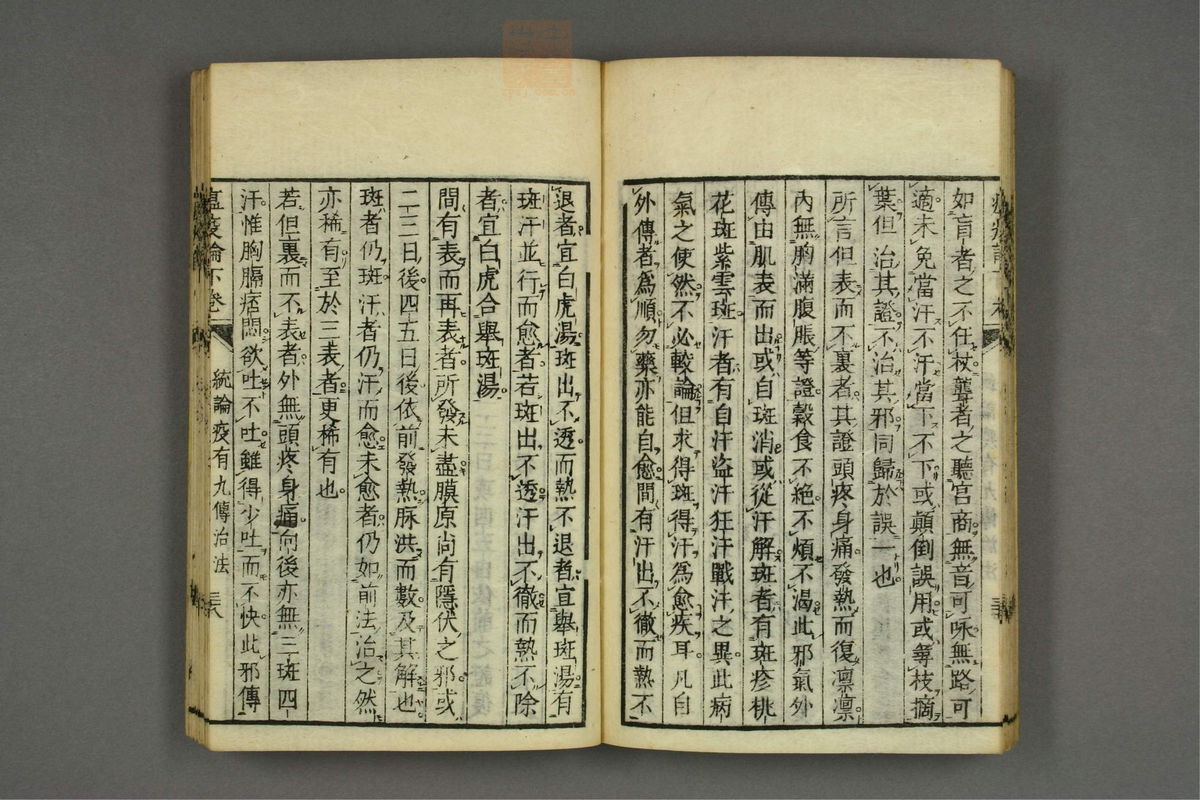 如盲者之不任杖聾者之聽宮商無音可咏無路可
適未免當汗不汗當下不下或顛倒誤用或尋枝摘
葉但治其證不治其邪同歸於誤一也
所言但表而不裏者其證頭疼身痛發熱而復凛凛
內無胸滿腹脹等證穀食不絶不煩不渴此邪氣外
傳由肌表而出或自斑消或從汗解斑者有斑疹桃
花斑紫雲斑汗者有自汗盗汗狂汗戰汗之異此病
氣之使然不必較論但求得斑得汗爲愈疾耳凡自
外傳者爲順勿藥亦能自愈間有汗出不徹而熱不
退者宜白虎湯斑出不透而熱不退者宜舉斑湯有
斑汗並行而愈者若斑出不透汗出不徹而熱不除
者宜白虎合舉斑湯
間有表而再表者所發未盡膜原尚有隱伏之邪或
二三日後四五日後依前發熱脉洪而數及其解也
斑者仍斑汗者仍汗而愈未愈者仍如前法治之然
亦稀有至於三表者更稀有也
若但裏而不表者外無頭疼身痛向後亦無三斑四
汗惟胸膈痞悶欲吐不吐雖得少吐而不快此邪傳
瘟疫論下卷 統論疫有九傳治法 三十八